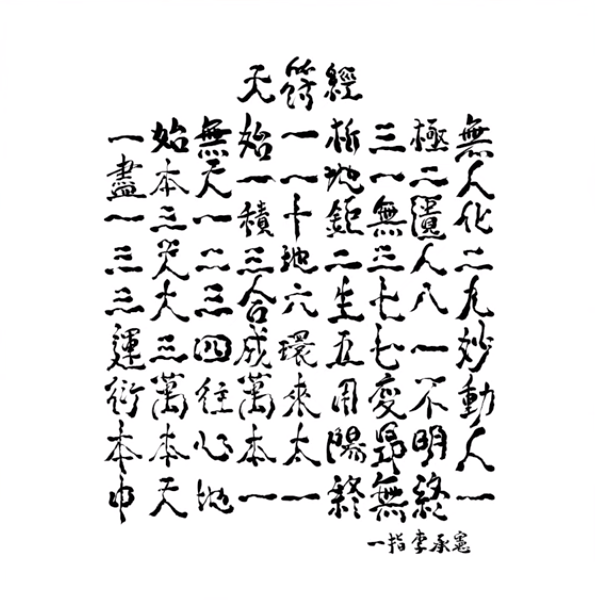 天符經
一始無始一析三極無
盡本天一一地一二人
一三一積十鉅無匱化
三天二三地二三人二
三大三合六生七八九
運三四成環五七一妙
衍萬往萬來用變不動
本本心本太陽昂明人
中天地一一終無終一
一指 李承憲